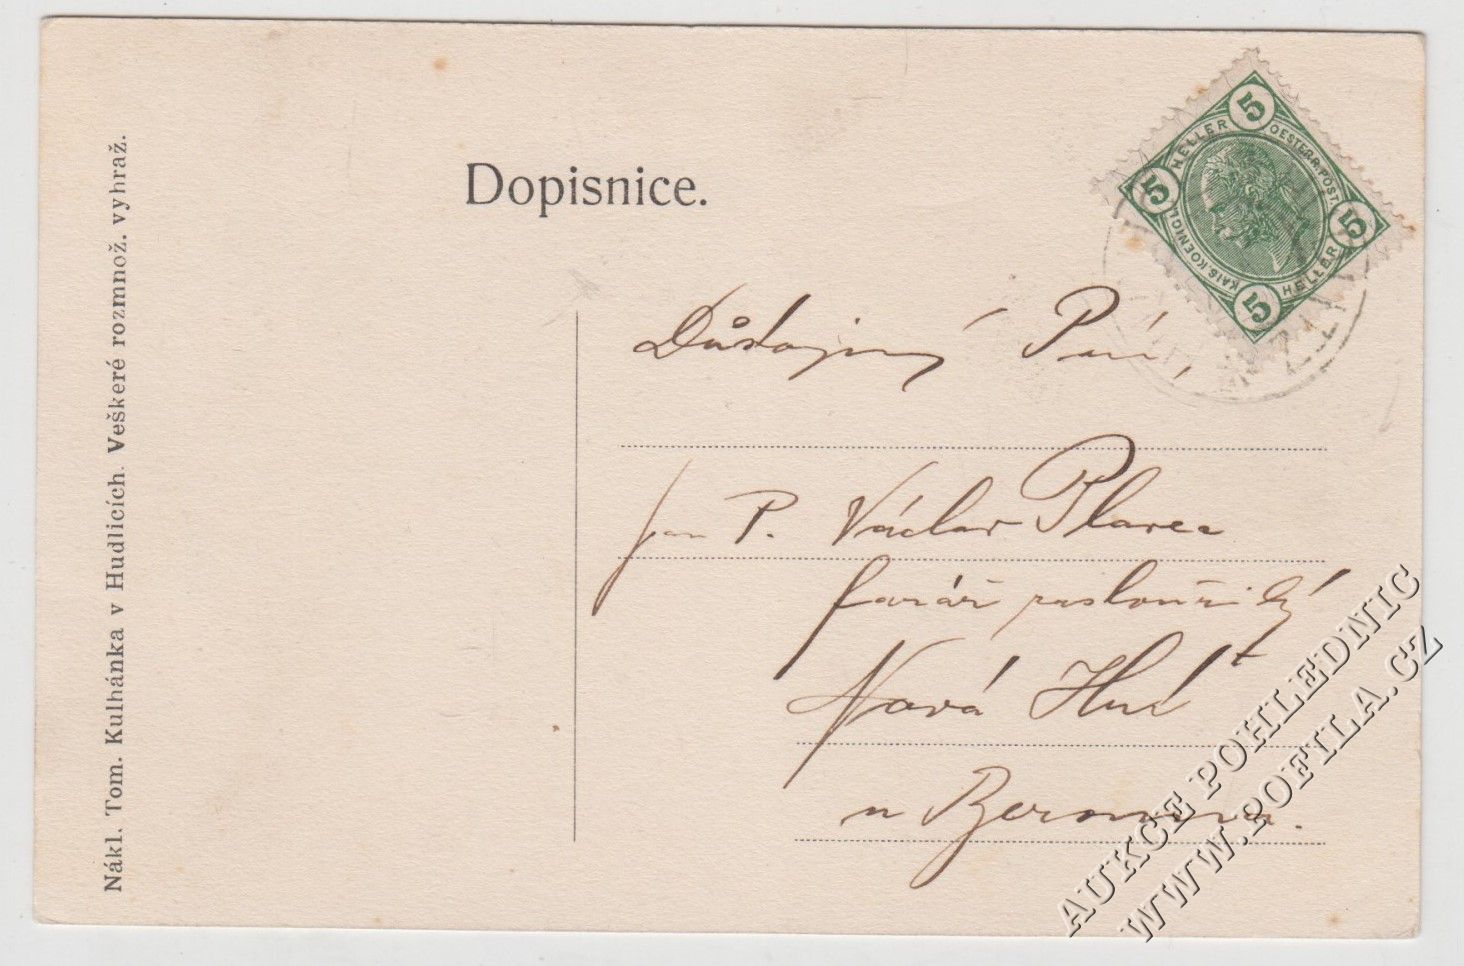 Dopisnice.
Nákl. Tom. Kulhánka v Hudlicích. Veškeré rozmnož. vyhraž.
5 HELLER 5 OESTERR. POST. 5 HELLER 5 KAIS. KOENIGL.
Důstojný Pán,
pan P. Václav
farář zasloužilý
Nová Huť
u Berouna.
AUKCE POHLEDNIC
WWW.POFILA.CZ